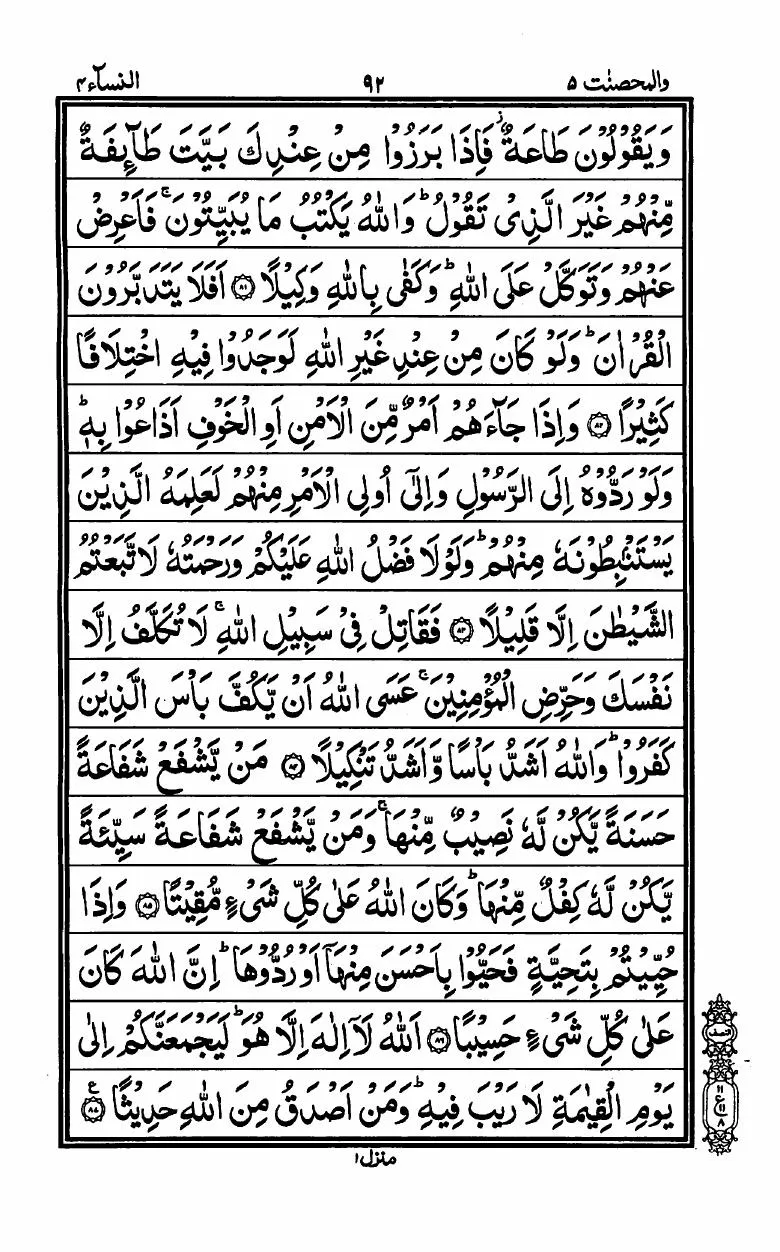 والمحصنت ۵ ۹۲ النسآء ۴
وَيَقُوۡلُوۡنَ طَاعَةٌ ۫ فَاِذَا بَرَزُوۡا مِنۡ عِنۡدِكَ بَيَّتَ طَآٮِٕفَةٌ
مِّنۡهُمۡ غَيۡرَ الَّذِىۡ تَقُوۡلُ ؕ وَاللّٰهُ يَكۡتُبُ مَا يُبَيِّتُوۡنَ ۚ فَاَعۡرِضۡ
عَنۡهُمۡ وَتَوَكَّلۡ عَلَى اللّٰهِ ؕ وَكَفٰى بِاللّٰهِ وَكِيۡلًا ۝۸۱ اَفَلَا يَتَدَبَّرُوۡنَ
الۡقُرۡاٰنَ ؕ وَلَوۡ كَانَ مِنۡ عِنۡدِ غَيۡرِ اللّٰهِ لَوَجَدُوۡا فِيۡهِ اخۡتِلَافًا
كَثِيۡرًا ۝۸۲ وَاِذَا جَآءَهُمۡ اَمۡرٌ مِّنَ الۡاَمۡنِ اَوِ الۡخَوۡفِ اَذَاعُوۡا بِهٖ ؕ
وَلَوۡ رَدُّوۡهُ اِلَى الرَّسُوۡلِ وَاِلٰٓى اُولِى الۡاَمۡرِ مِنۡهُمۡ لَعَلِمَهُ الَّذِيۡنَ
يَسۡتَنۡۢبِطُوۡنَهٗ مِنۡهُمۡ ؕ وَلَوۡلَا فَضۡلُ اللّٰهِ عَلَيۡكُمۡ وَرَحۡمَتُهٗ لَاتَّبَعۡتُمُ
الشَّيۡطٰنَ اِلَّا قَلِيۡلًا ۝۸۳ فَقَاتِلۡ فِىۡ سَبِيۡلِ اللّٰهِ ۚ لَا تُكَلَّفُ اِلَّا
نَفۡسَكَ وَحَرِّضِ الۡمُؤۡمِنِيۡنَ ۚ عَسَى اللّٰهُ اَنۡ يَّكُفَّ بَاۡسَ الَّذِيۡنَ
كَفَرُوۡا ؕ وَاللّٰهُ اَشَدُّ بَاۡسًا وَّاَشَدُّ تَنۡكِيۡلًا ۝۸۴ مَنۡ يَّشۡفَعۡ شَفَاعَةً
حَسَنَةً يَّكُنۡ لَّهٗ نَصِيۡبٌ مِّنۡهَا ۚ وَمَنۡ يَّشۡفَعۡ شَفَاعَةً سَيِّئَةً
يَّكُنۡ لَّهٗ كِفۡلٌ مِّنۡهَا ؕ وَكَانَ اللّٰهُ عَلٰى كُلِّ شَىۡءٍ مُّقِيۡتًا ۝۸۵ وَاِذَا
حُيِّيۡتُمۡ بِتَحِيَّةٍ فَحَيُّوۡا بِاَحۡسَنَ مِنۡهَاۤ اَوۡ رُدُّوۡهَا ؕ اِنَّ اللّٰهَ كَانَ
عَلٰى كُلِّ شَىۡءٍ حَسِيۡبًا ۝۸۶ اَللّٰهُ لَاۤ اِلٰهَ اِلَّا هُوَ ؕ لَيَجۡمَعَنَّكُمۡ اِلٰى
النصف
يَوۡمِ الۡقِيٰمَةِ لَا رَيۡبَ فِيۡهِ ؕ وَمَنۡ اَصۡدَقُ مِنَ اللّٰهِ حَدِيۡثًا ۝۸۷ ع
۱۱
ع ۱۱
۸
منزل ۱